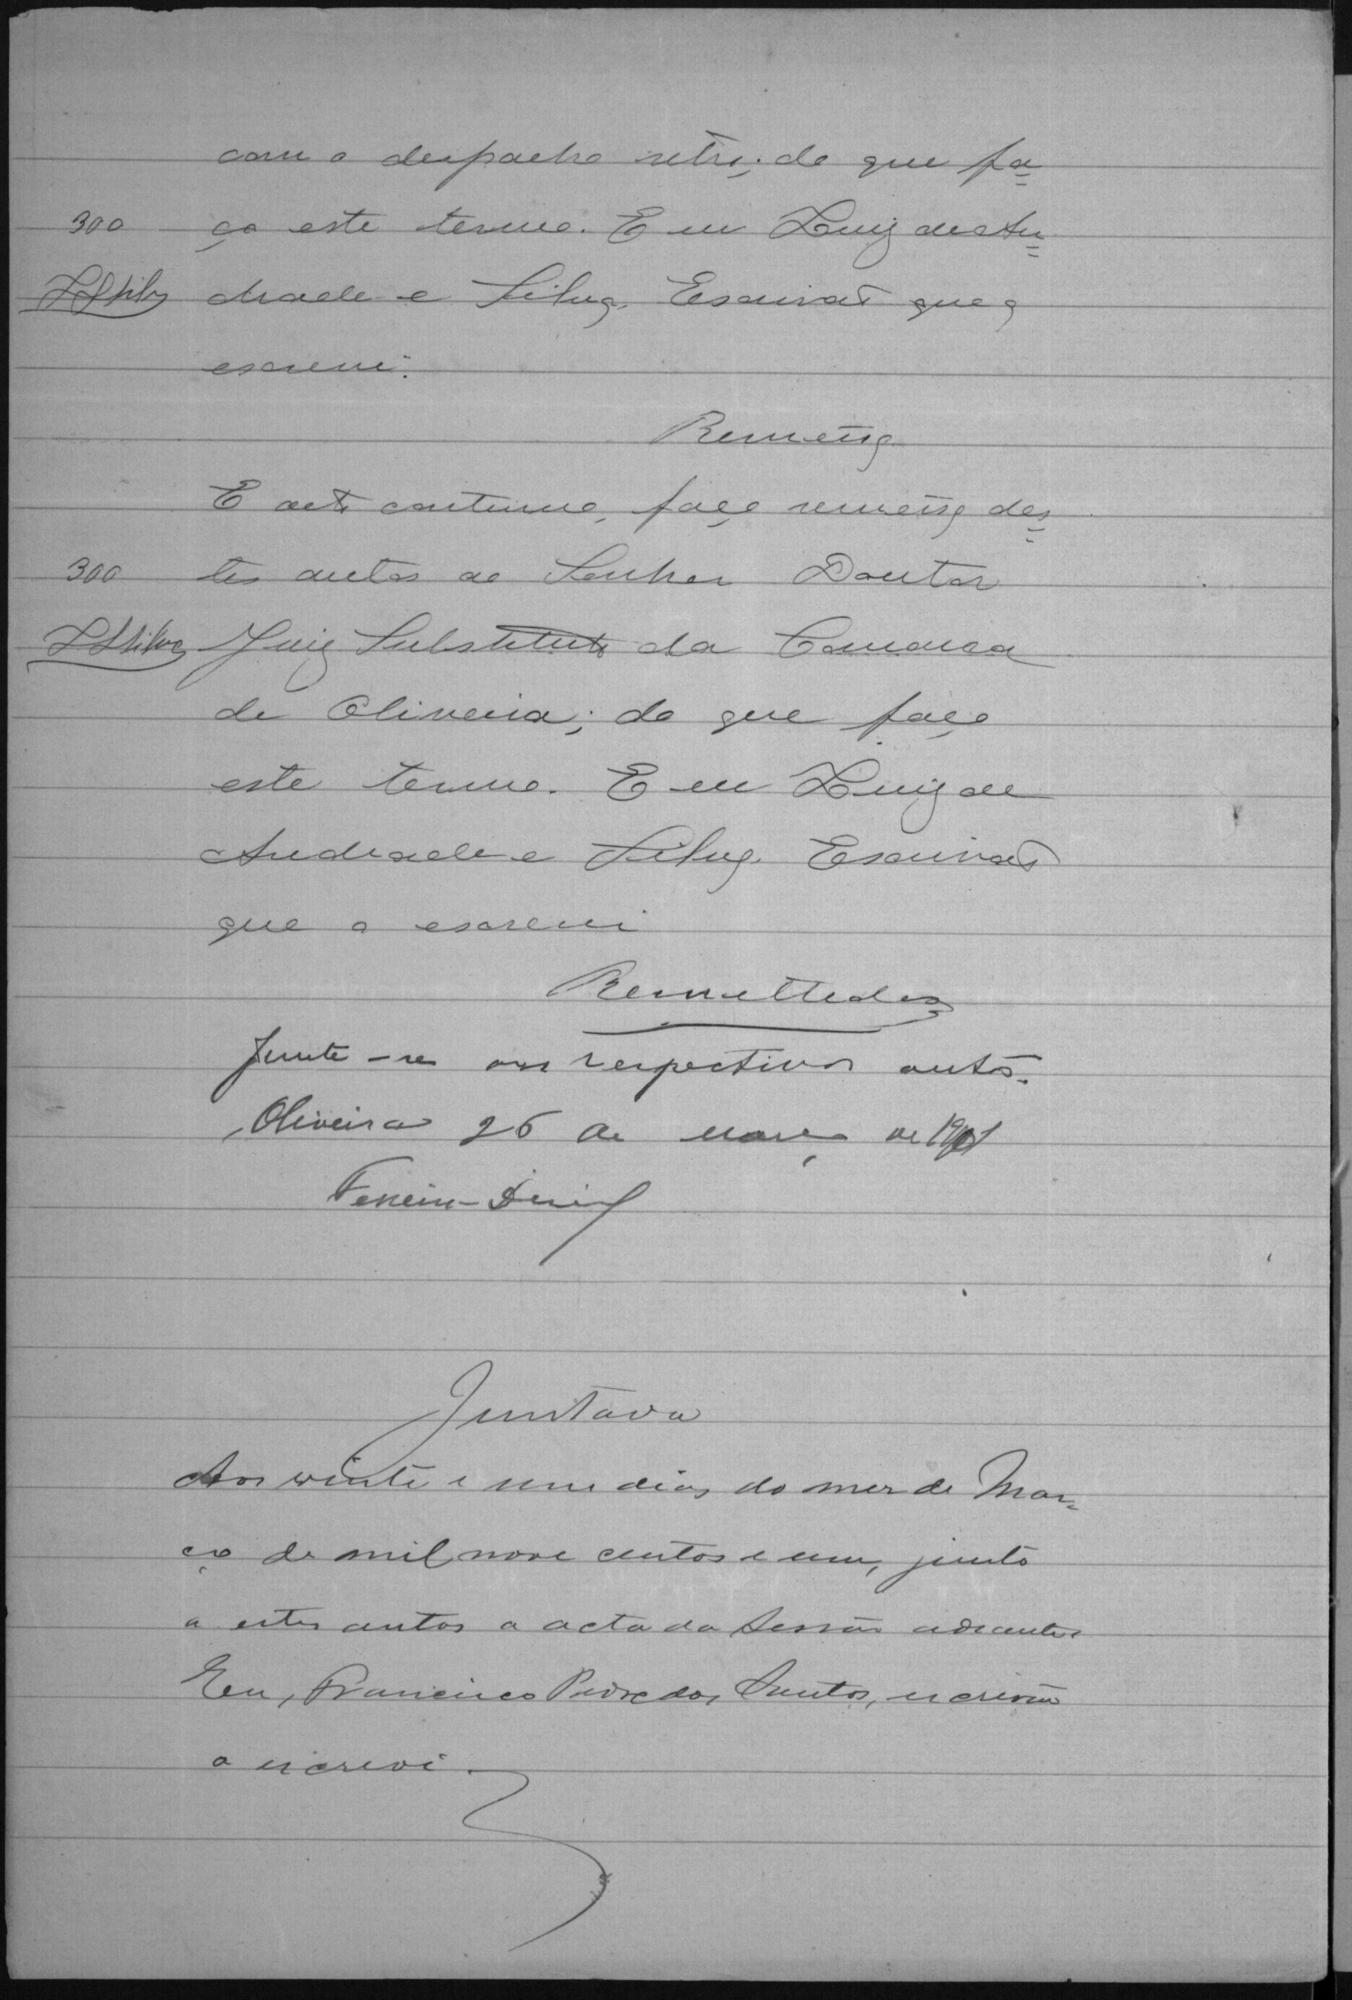 com o despacho retro; do que fa=
300 ço este termo. E eu Luiz de An=
LASilva drade e Silva, Escrivão que o
escrevi.
Remessa
E acto continuo, faço remessa des=
300 tes autos ao Senhor Doutor
LASilva Juiz Substituto da Comarca
de Oliveira; do que faço
este termo. E eu Luiz de
Andrade e Silva, Escrivão
que o escrevi
Remettidos
Junte-se aos respectivos autos.
Oliveira 26 de março de 1901
Ferreira
Juntada
Aos vinte e um dias do mez de Mar-
ço de mil nove centos e um, junto
a estes autos a acta da sessão adeante.
Eu, Francisco Pedro dos Santos, escrivão
o escrevi.